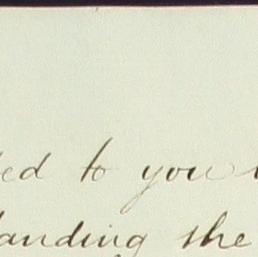 ed to you
anding she